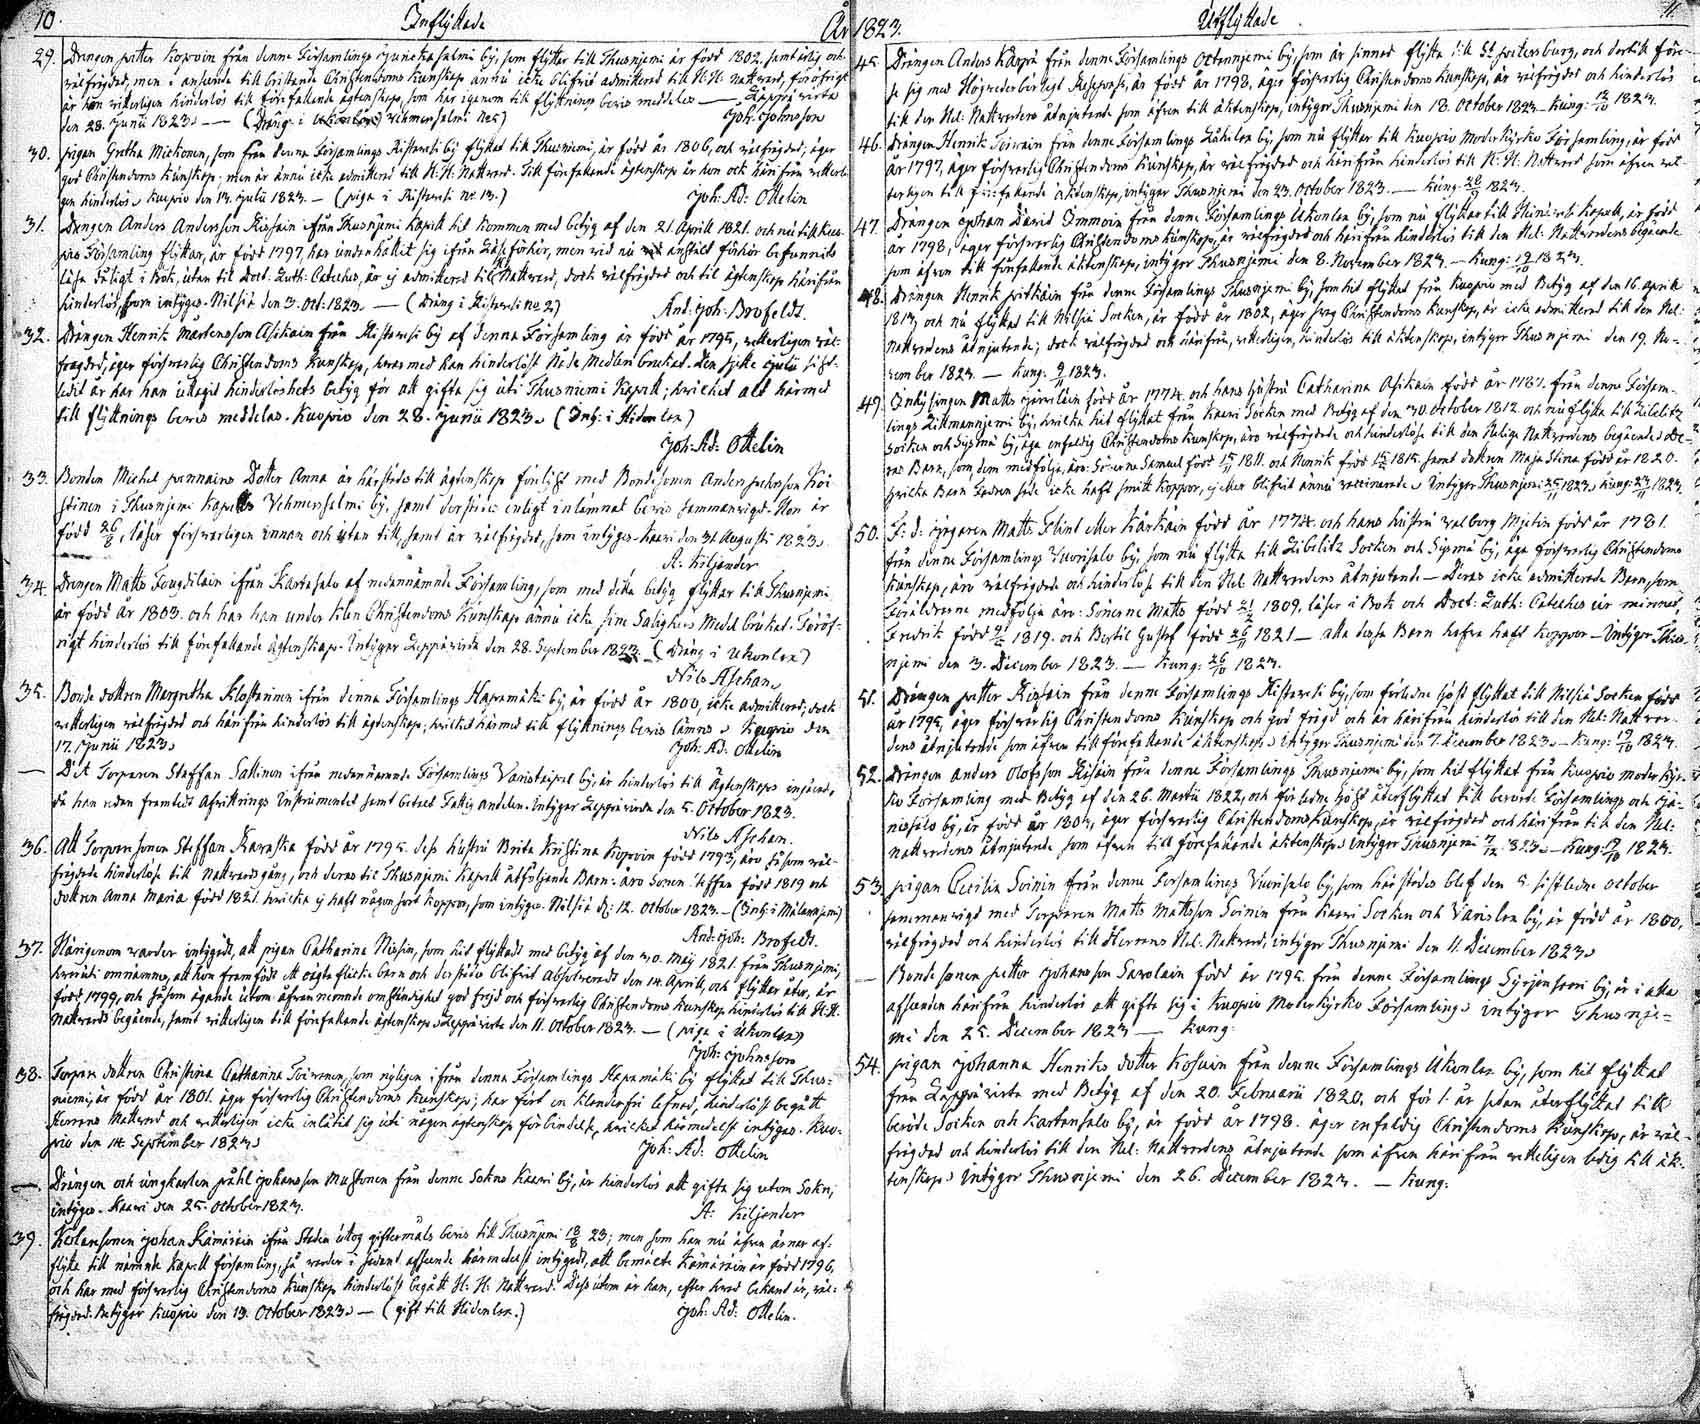 10. Inflyttade År
29. Drengen petter Kopoin från denne Församlings byn, som flytter till Thusnjemi är född 1802, samt ärlig och
välfrägdad, men i anseende till bristande Christendoms kunskap ännu icke blifvit admitterad till H. H. nattvard, föröfrigt
är han vitterligen hinderlös till förefallande ägtenskap, som har igenom till flyttnings bevis meddelas — Leppävirta
den 28. Junii 1823. — (Dräng i Vehmersalmi No 5) Joh: Johnsson
30. pigan Gretha Miettonen, som från denna Församlings Ristavesi by flyttat till Thusniemi, är född år 1806, och välfrägdad, äger
god Christendoms kunskap, men är ännu icke admitterad till H. H. Nattvard. Till förefallande ägtenskap är hon ock härifrån vetterli-
gen hinderlös. Kuopio den 14. Julii 1823. — (piga i Ristavesi No 13.) Joh: Ad: Ottelin
31. Drengen Anders Andersson Risain ifrån Thusnjemi Kapell hit kommen med betyg af den 21. Aprill 1821. och nu till Kuo-
pio Församling flyttar, är född 1797, har undanhållit sig ifrån Läseförhör, men vid nu anstält förhör befunnits
läsa Svagt i Bok, utan till Doct. Luth: Cateches, är ej admitterad till Nattvard, dock välfrägdad och til ägtenskap härifrån
hinderlös, som intygas. Nilsiä den 3. Oct: 1823. — (Dräng i Ristavesi no 2) And: Joh: Brofeldt.
32. Drängen Henrik Mårtensson Asikain från Ristavesi by af denna Församling är född år 1795, vetterligen väl-
frägdad, äger försvarlig Christendoms kunskap, hvarmed han hinderlöst Nåde Medlen brukat. Den sjette Julii sist-
ledit år har han uttagit hinderlöshets betyg för att gifta sig uti Thusniemi Kapell; hvilket allt härmed
till flyttnings bevis meddelas. Kuopio den 28. Junii 1823. (Inh: i Hidenlax)
Joh: Ad: Ottelin
33. Bonden Michel pannains Dotter Anna är härstädes till ägtenskap förlyst med Bondesonen Anders Johnsson Koi
stinen i Thusnjemi Kapells Vehmersalmi by, samt derstädes enligt inlämnat bevis sammanvigd. Hon är
född 26/8, läser försvarligen innan och utan till, samt är välfrägdad, som intygas. Kaavi den 31. Augusti 1823.
A: Kiljander
34. Drengen Matts Fougdilain ifrån Kartesalo af nedannämnde Församling, som med detta betyg flyttar till Thusnjemi,
är född år 1803. och har han under klen Christendoms kunskap ännu icke sine Salighets Medel brukat. Föröf-
rigt hinderlös till förefallande ägtenskap. Intygar Leppävirta den 28. September 1823. (Dräng i Ukonlax)
Nils Aschan.
35. Bonde dottren Margretha Klostarinen ifrån denna Församlings Hapamäki by, är född år 1800, icke admitterad, dock
vetterligen välfrägdad och härifrån hinderlös till ägtenskap; hvilket härmed till flyttnings bevis lämnas. Kuopio den
17. Junii 1823. Joh: Ad: Ottelin
— D. A Torparen Staffan Sallinen ifrån nedannämnde Församlings Varistaipal by, är hinderlös till Ägtenskaps ingående,
då han redan framtedt Afvittrings Instrumentet samt betalt Fattig andelen. Intygar Leppävirta den 5. October 1823.
Nils Aschan.
36. Att Torparesonen Staffan Karaska född år 1795. dess hustru Brita Kristina Kopoin född 1793, äro såsom väl-
frägdade hinderlöse till nattvards gång, och deras til Thusnjemi Kapell åtföljande Barn: äro Sonen Staffan född 1819 och
dottren Anna Maria född 1821. hvilka ej haft någon sort koppor, som intygas. Nilsiä d: 12. October 1823. — (Inh: i Målannjemi)
And: Joh: Brofeldt.
37. Härigenom warder intygadt, att pigan Catharina Nissin, som hit flyttade med betyg af den 30. Maij 1821. från Thusnjemi,
hvaruti omnämnes, att hon framfödt ett oägta flicke barn och derstädes blifvit Absolverad den 14. Aprill, och flytter åter, är
född 1799, och såsom ägande utom åfvannemnde omständighet god frejd och försvarlig Christendoms kunskap hinderlös till H. H.
Nattvards begående, samt vitterligen till förefallande ägtenskap. Leppävirta den 11. October 1823. — (piga i Ukonlax)
Joh: Johnsson
38. Torpare dottren Christina Catharina Toivanen, som nyligen ifrån denna Församlings Hapamäki by flyttat till Thus-
niemi, är född år 1801. äger försvarlig Christendoms kunskap; har fört en klanderfri lefnad, hinderlöst begått
Herrans Nattvard och vetterligen icke inlåtit sig uti någon ägtenskaps förbindelse, hvilket härmedelst intygas. Kuo-
pio den 14. September 1823. Joh: Ad: Ottelin
— Drängen och ungkarlen påhl Johansson Mustonen från denne Sokns Kaavi by, är hinderlös att gifta sig utom Sokn,
intygas. Kaavi den 25. October 1823. A: Kiljander
39. Johan Kämäräin ifrån Staden uttog giftermåls bevis till Thusnjemi 18/8 23; men som han nu äfven ärnar af-
flytta till nämnde Kapell församling, så warder i sådant afseende härmedelst intygadt, att bemälte Kämäräin är född 1796,
och har med försvarlig Christendoms kunskap hinderlöst begått H: H: Nattvard. Dess utom är han, efter hvad bekant är, väl-
frägdad. Betygar Kuopio den 13. October 1823. — (gift till Hidenlax.) Joh: Ad: Ottelin.
1823. Utflyttade 11.
45. Drängen Anders Kaupi från denne Församlings by, som är sinnad flytta till St petersburg, och dertill före-
se sig med Högvederbörligt Respass, är född år 1798, äger försvarlig Christendoms kunskap, är välfrägdad och hinderlös
till den Hel: Nattvardens åtnjutande som äfven till äktenskap, intygar Thusnjemi den 18. October 1823. Kung: 12/10 1823.
46. Drängen Henrik Toivain från denne Församlings by, som nu flytter till Kuopio Moderkyrko Församling, är född
år 1797, äger försvarlig Christendoms kunskap, är välfrägdad och härifrån hinderlös till H: H. Nattvard som äfven vet-
terligen till förefallande äktenskap, intygar Thusnjemi den 23. October 1823. — Kung: 28/9 1823.
47. Drängen Johan David Immoin från denne Församlings Ukonlax by, som nu flyttar till Heinävesi Kapell, är född
år 1798, äger försvarlig Christendoms kunskap, är välfrägdad och härifrån hinderlös till den Hel: Nattvardens begående
som äfven till förefallande äktenskap, intygar Thusnjemi den 8. November 1823. — Kung: 19/10 1823.
48. Drängen Henrik pitkäin från denne Församlings Thusnjemi by, som hit flyttat från Kuopio med Betyg af den 16. aprill
1817, och nu flyttat till Nilsiä Socken, är född år 1802, äger svag Christendoms kunskap, är icke admitterad till den Hel:
Nattvardens åtnjutande; dock välfrägdad och härifrån, vetterligen, hinderlös till äktenskap, intygar Thusnjemi den 19. No-
vember 1823. — Kung: 9/11 1823.
49. Inhysingen Matts Järviläin född år 1774. och hans hustru Catharina Asikain född år 1787. från denne Försam-
lings Litmannjemi by, hvilka hit flyttat från Kaavi Socken med Betyg af den 30. October 1812. och nu flytta till Libelitz
Socken och Sysmä by, äga enfaldig Christendoms kunskap, äro välfrägdade och hinderlöse till den Helige Nattvardens begående. De-
ras Barn, som dem medfölja, äro: Sönerne Samuel född 15/11 1811. och Henrik född 15/2 1815. samt dottren Maja Stina född år 1820.
hvilka Barn hafva icke haft smitt koppor, ej eller blifvit ännu vaccinerade. Intygar Thusnjemi 25/11 1823. Kung: 23/11 1823.
50. F: d: Jägaren Matts Flint eller Kärkäin född år 1774. och hans hustru Valborg Mjetin född år 1781.
från denne Församlings Vuorisalo by, som nu flytta till Libelitz Socken och Sysmä by, äga försvarlig Christendoms
kunskap, äro välfrägdade och hinderlöse till den Hel: Nattvardens åtnjutande — Deras icke admitterade Barn, som
Föräldrarne medfölja äro: Sönerne Matts född 21/2 1809, läser i Bok och Doct: Luth: Cateches ur minnet,
Fredrik född 1819. och Bertil Gustaf född 26/11 1821 — alla dessa Barn hafva haft koppor — Intygar Thus-
njemi den 3. December 1823. — Kung: 26/10 1823.
51. Drängen petter Risain från denne Församlings Ristavesi by, som förledne höst flyttat till Nilsiä Socken född
år 1795, äger försvarlig Christendoms kunskap och god frägd och är härifrån hinderlös till den Hel: Nattvar-
dens åtnjutande som äfven till förefallande äktenskap. Intygar Thusnjemi den 7. December 1823. — Kung: 19/10 1823.
52. Drängen Anders Olofsson Risäin från denne Församlings Thusnjemi by, som hit flyttat från Kuopio moder Kyr-
ko Församling med Betyg af den 26. Martii 1822, och förledne höst återflyttat till berörde Församlings och
by, är född år 1804, äger försvarlig Christendoms kunskap, är välfrägdad och härifrån till den Hel:
nattvardens åtnjutande som äfven till förefallande äktenskap. Intygar Thusnjemi 7/12 1823. — Kung: 19/10 1823.
53. pigan Cecilia Soinin från denne Församlings Vuorisalo by, som härstädes blef den 5. sistledne October
sammanvigd med Torparen Matts Mattsson Soinin från Kaavi Socken och Varislax by, är född år 1800,
välfrägdad och hinderlös till Herrans Hel: Nattvard, intygar Thusnjemi den 11. December 1823.
— Bonde sonen petter Johansson Savolain född år 1795. från denne Församlings Syrjensaari by, är i alla
afseenden härifrån hinderlös att gifta sig i Kuopio Moderkyrko Församling. intygar Thusnje-
mi den 25. December 1823 — Kung:
54. pigan Johanna Henriks dotter Kosuin från denne Församlings Ukonlax by, som hit flyttat
från Leppävirta med Betyg af den 20. Februarii 1820, och för 1. år sedan återflyttat till
berörde Socken och Kartensalo by, är född år 1798. äger enfaldig Christendoms kunskap, är väl-
frägdad och hinderlös till den Hel: Nattvardens åtnjutande som äfven härifrån vetteligen ledig till äk-
tenskap. Intygar Thusnjemi den 26. December 1823. — Kung: